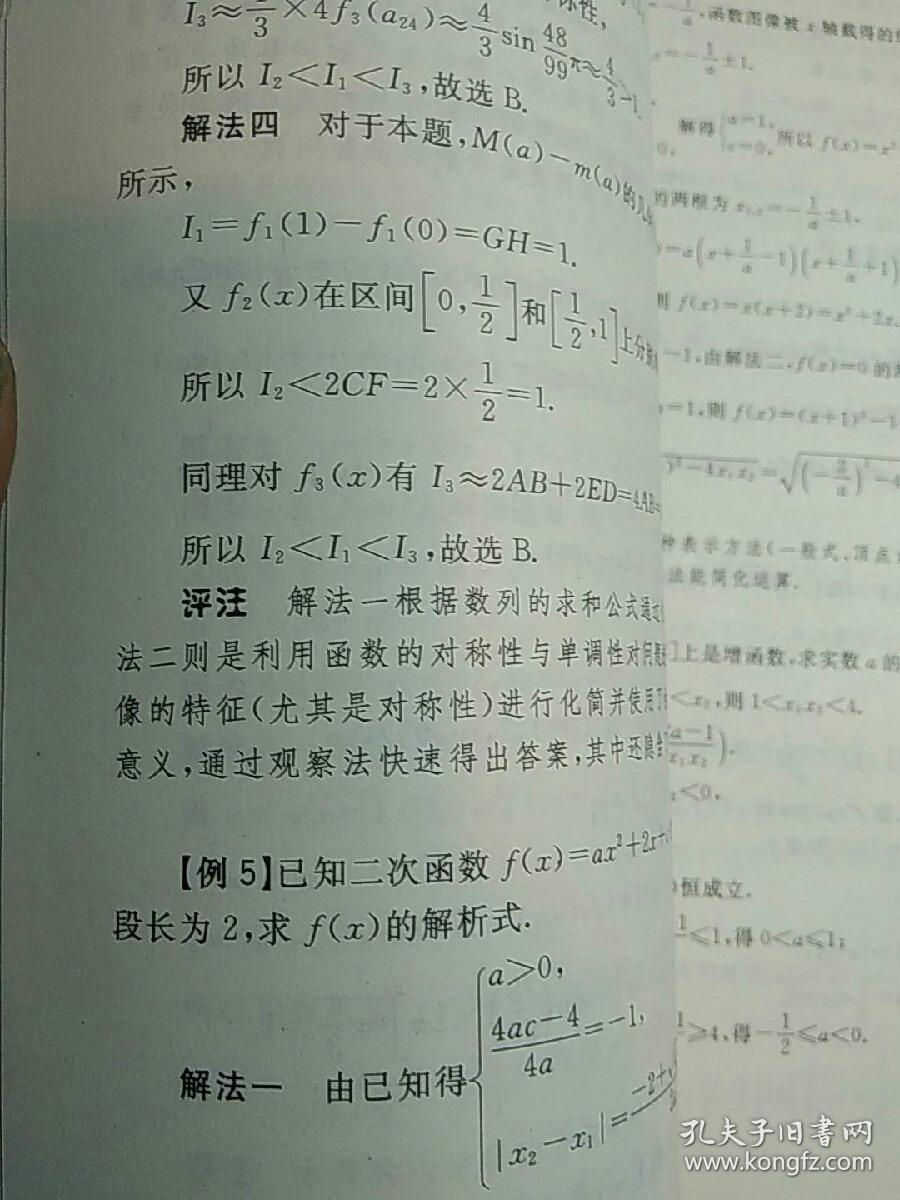 I₃≈ /3×4f₃(a₂₄)≈4/3 sin 48/99 π≈4/3
所以 I₂<I₁<I₃,故选 B.
解法四 对于本题,M(a)-m(a)的
所示,
I₁=f₁(1)-f₁(0)=GH=1.
又 f₂(x)在区间[0,1/2]和[1/2,1]上分
所以 I₂<2CF=2×1/2=1.
同理对 f₃(x)有 I₃≈2AB+2ED=4AB=
所以 I₂<I₁<I₃,故选 B.
评注 解法一根据数列的求和公式通过
法二则是利用函数的对称性与单调性对问题
像的特征(尤其是对称性)进行化简并使用了
意义,通过观察法快速得出答案,其中还隐含
【例 5】已知二次函数 f(x)=ax²+2x+
段长为 2,求 f(x)的解析式.
解法一 由已知得{a>0,
4ac-4/4a=-1,
|x₂-x₁|=-2+
函数图像被 x 轴截得的
=-1/a±1.
解得{a=1, c=0. 所以 f(x)=x²
的两根为 x₁,₂=-1/a±1.
=a(x+1/a-1)(x+1/a+1)
则 f(x)=x(x+2)=x²+2x.
-1,由解法二,f(x)=0 的
=1,则 f(x)=(x+1)²-1
)²-4x₁x₂=√(-2/a)²-4
种表示方法(一般式、顶点
法能简化运算.
]上是增函数,求实数 a 的
<x₂,则 1<x₁x₂<4.
a-1/x₁x₂).
<0,
恒成立.
1/ ≤1,得 0<a≤1;
1/ ≥4,得-1/2≤a<0.
孔夫子旧书网
www.kongfz.com